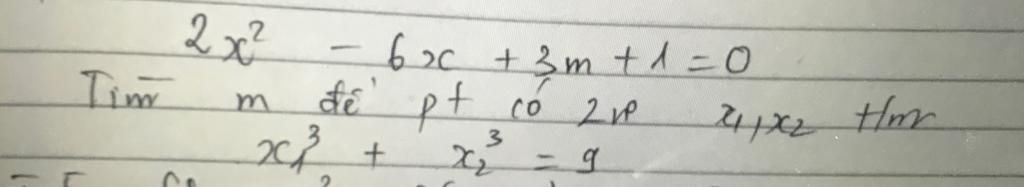 2x² - 6x + 3m + 1 = 0
Tìm m để pt có 2 no x₁, x₂ t/m
x₁³ + x₂³ = 9